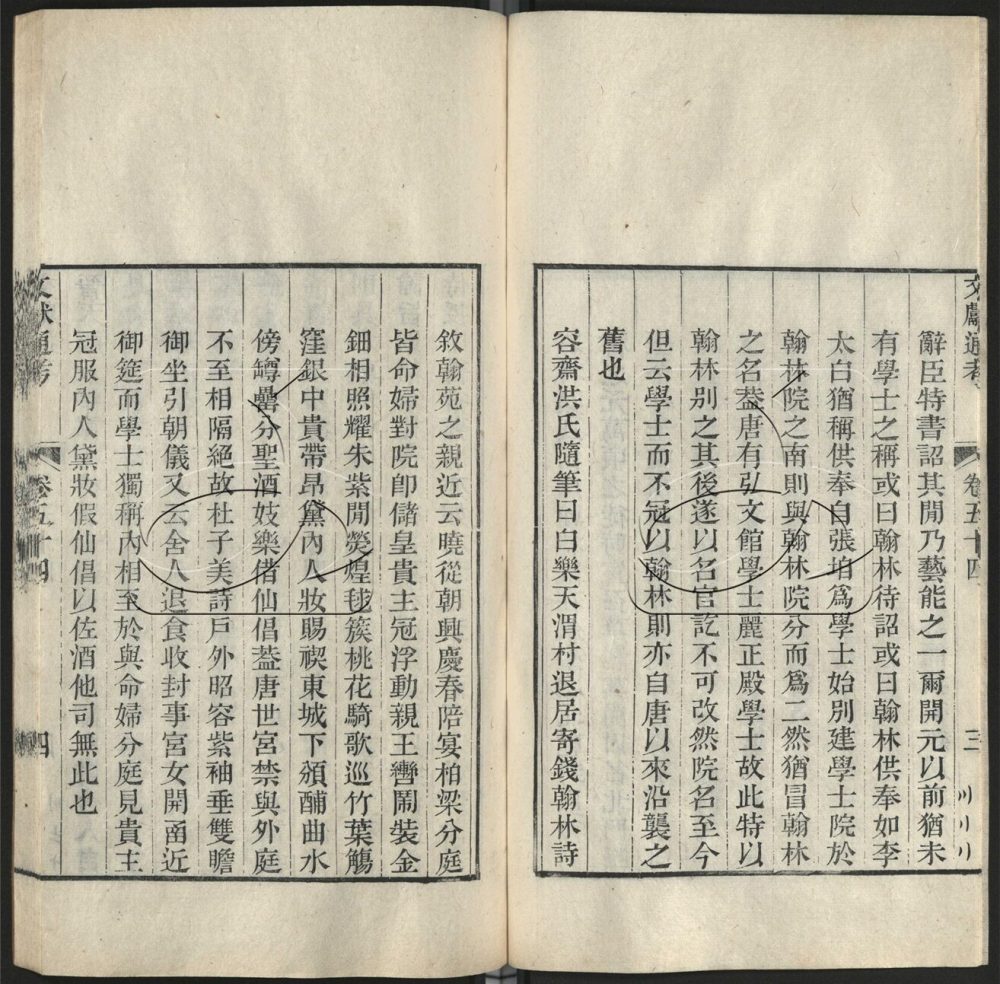 文獻通考 卷五十四 三
辭臣特書詔其閒乃藝能之一爾開元以前猶未
有學士之稱或曰翰林待詔或曰翰林供奉如李
太白猶稱供奉自張垍爲學士始別建學士院於
翰林院之南則與翰林院分而爲二然猶冒翰林
之名葢唐有弘文館學士麗正殿學士故此特以
翰林別之其後遂以名官訖不可改然院名至今
但云學士而不冠以翰林則亦自唐以來沿襲之
舊也
容齋洪氏隨筆曰白樂天渭村退居寄錢翰林詩
敘翰苑之親近云曉從朝興慶春陪宴柏梁分庭
皆命婦對院卽儲皇貴主冠浮動親王轡鬧裝金
鈿相照耀朱紫閒熒煌毬簇桃花騎歌巡竹葉觴
窪銀中貴帶昂黛內人妝賜禊東城下頒酺曲水
傍罇罍分聖酒妓樂借仙倡葢唐世宮禁與外庭
不至相隔絕故杜子美詩戶外昭容紫袖垂雙瞻
御坐引朝儀又云舍人退食收封事宮女開函近
御筵而學士獨稱內相至於與命婦分庭見貴主
冠服內人黛妝假仙倡以佐酒他司無此也
文獻通考 卷五十四 四